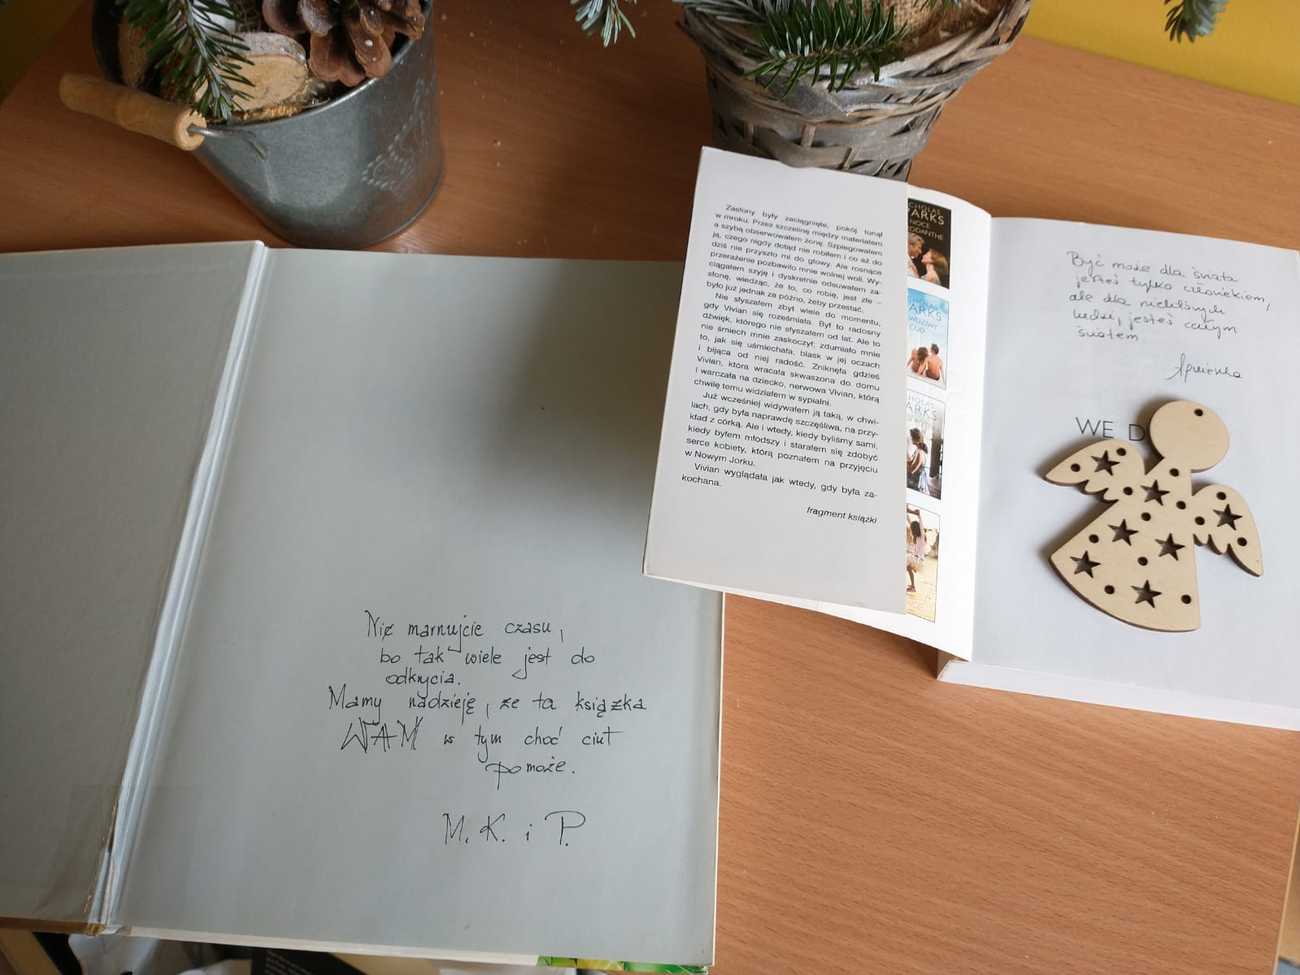 Nie marnujcie czasu,
bo tak wiele jest do
odkrycia.
Mamy nadzieję, że ta książka
WAM w tym choć ciut
pomoże.
M. K. i P.
Zasłony były zaciągnięte, pokój tonął
w mroku. Przez szczelinę między materiałem
a szybą obserwowałem żonę. Szpiegowałem
ją, czego nigdy dotąd nie robiłem i co aż do
dziś nie przyszło mi do głowy. Ale rosnące
przerażenie pozbawiło mnie wolnej woli. Wy-
ciągałem szyję i dyskretnie odsuwałem za-
słonę, wiedząc, że to, co robię, jest złe –
było już jednak za późno, żeby przestać.
Nie słyszałem zbyt wiele do momentu,
gdy Vivian się roześmiała. Był to radosny
dźwięk, którego nie słyszałem od lat. Ale to
nie śmiech mnie zaskoczył; zdumiało mnie
to, jak się uśmiechała, blask w jej oczach
i bijąca od niej radość. Zniknęła gdzieś
Vivian, która wracała skwaszona do domu
i warczała na dziecko, nerwowa Vivian, którą
chwilę temu widziałem w sypialni.
Już wcześniej widywałem ją taką, w chwi-
lach, gdy była naprawdę szczęśliwa, na przy-
kład z córką. Ale i wtedy, kiedy byliśmy sami,
kiedy byłem młodszy i starałem się zdobyć
serce kobiety, którą poznałem na przyjęciu
w Nowym Jorku.
Vivian wyglądała jak wtedy, gdy była za-
kochana.
fragment książki
CHOLAS
ARKS
NOCE
ODANTHE
ARKS
CUD
CHOLAS
ARKS
Być może dla świata
jesteś tylko człowiekiem,
ale dla niektórych
ludzi, jesteś całym
światem
Agnieszka
WE D